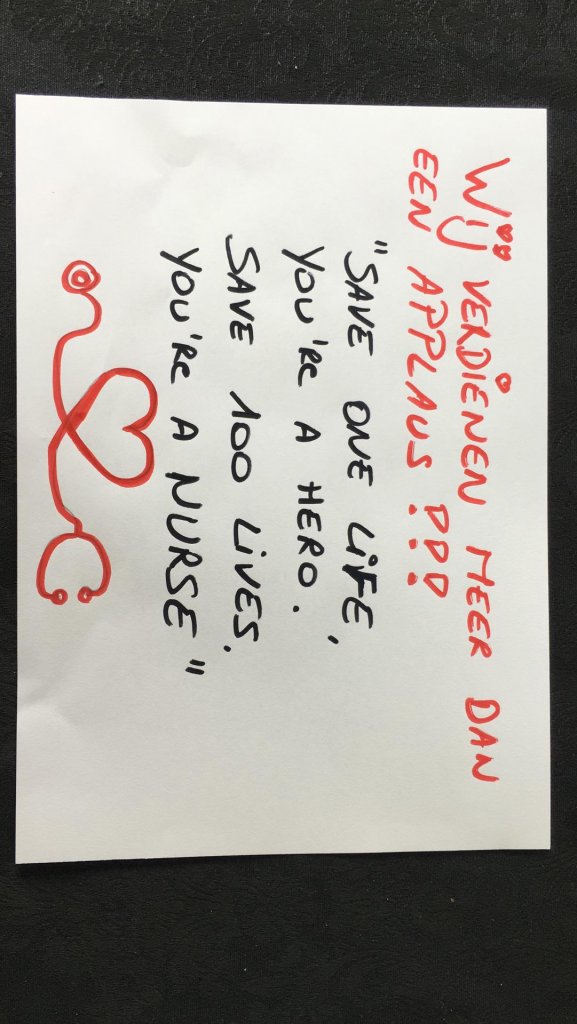 Wij VERDIENEN MEER DAN
EEN APPLAUS !!!
"SAVE ONE LiFE,
YOU'RE A HERO.
SAVE 100 LiVES.
YOU'RE A NURSE"